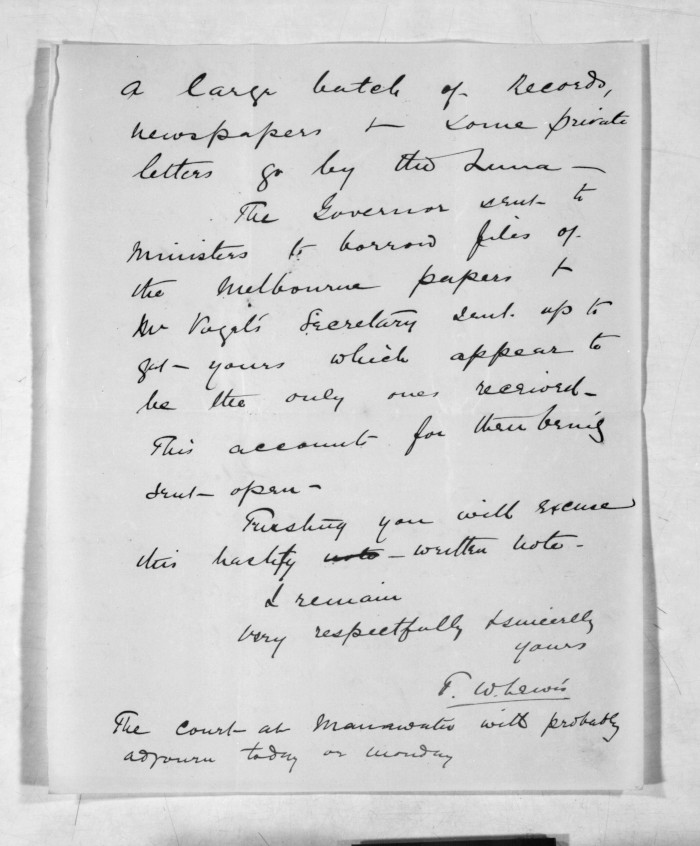 a large batch of Records,
newspapers & some private
letters go by the Luna —
The Governor sent to
Ministers to borrow files of
the Melbourne papers &
Mr Vogel's Secretary sent up to
get yours which appear to
be the only ones received —
This accounts for them being
sent open —
Trusting you will excuse
this hastily note — written note —
I remain
Very respectfully & sincerely
yours
T. W. Lewis
The Court at Manawatu will probably
adjourn today or Monday